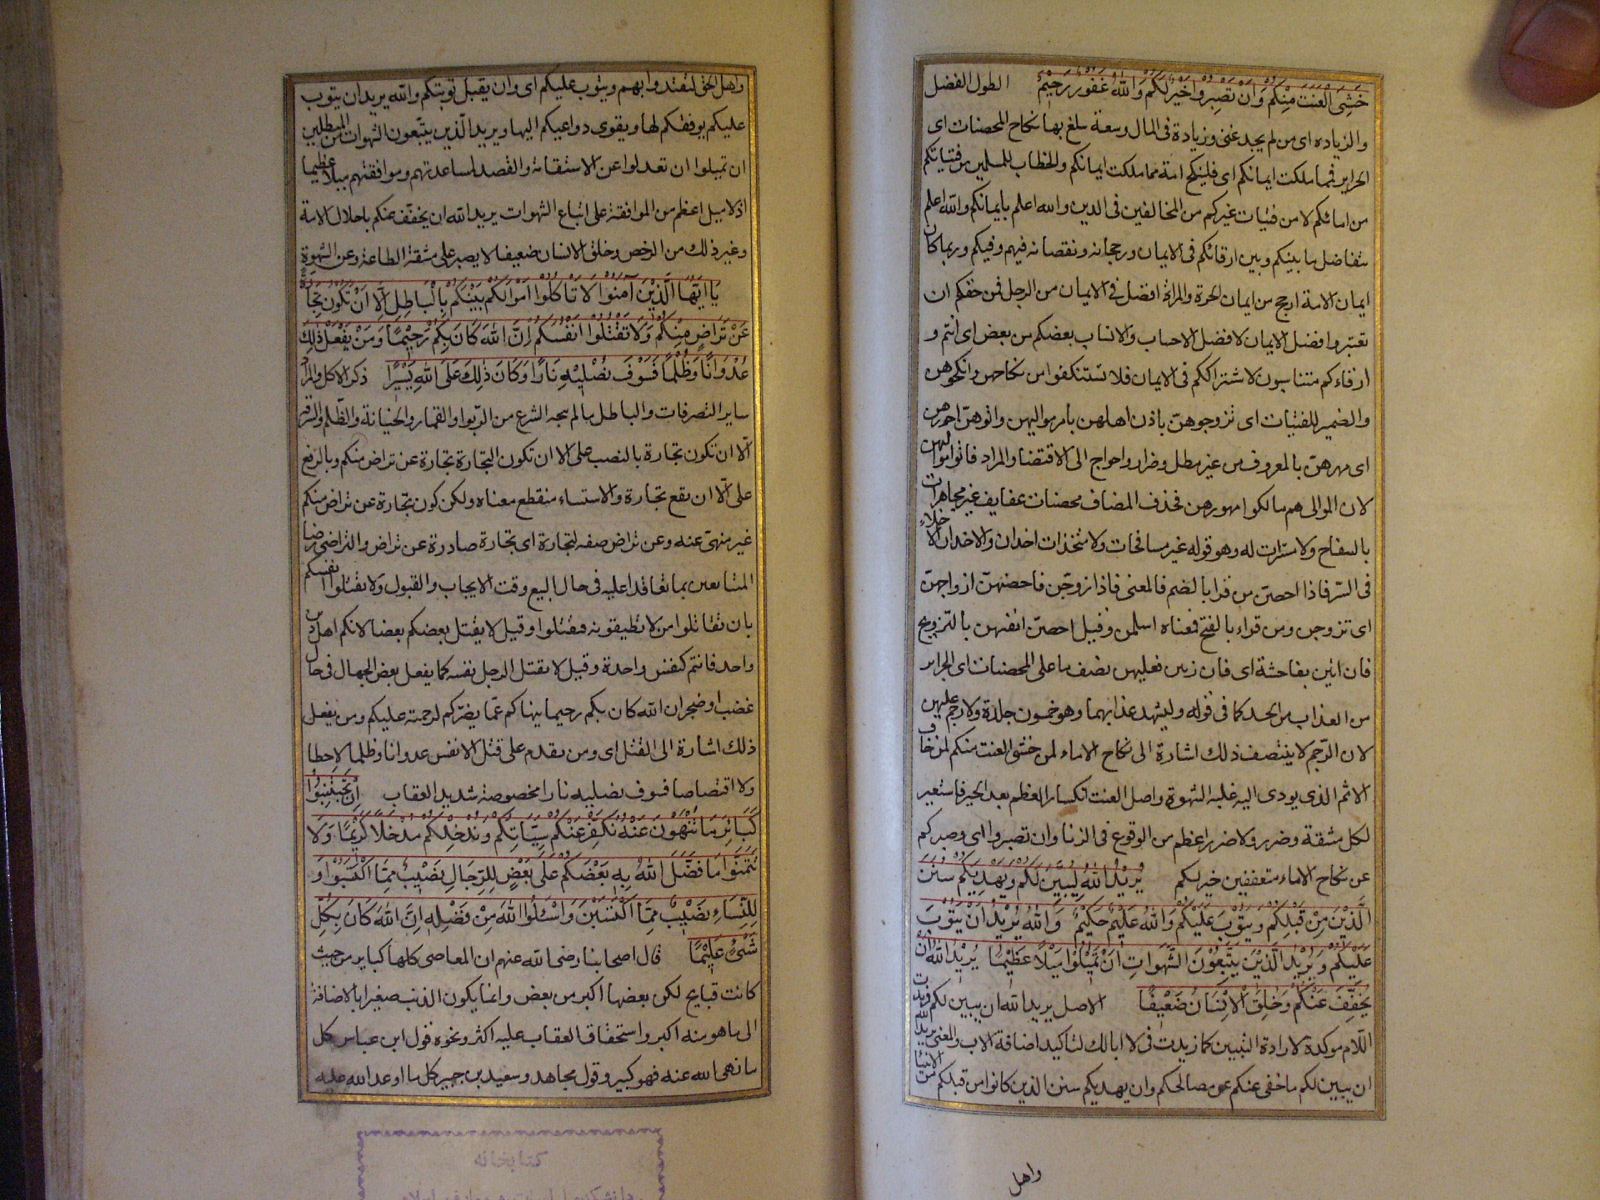 خَشِيَ الْعَنَتَ مِنْكُمْ وَاَنْ تَصْبِرُوا خَيْرٌ لَكُمْ وَاللّٰهُ غَفُورٌ رَحِيْمٌ الطول الفضل
والزياده اى من لم يجد غنى وزيادة فى المال وسعة يبلغ بها نكاح المحصنات اى
الحراير فمما ملكت ايمانكم اى فلينكح امة مما ملكت ايمانكم والخطاب للمسلمين من فتياتكم
من امائكم لا من فتيات غيركم من المخالفين فى الدين والله اعلم بايمانكم والله اعلم
بتفاضل ما بينكم وبين ارقائكم فى الايمان ورجحانه ونقصانه فيهم وفيكم وربما كان
ايمان الامة ارجح من ايمان الحرة والمراة افضل فى الايمان من الرجل فمن حقكم ان
تعتبروا فضل الايمان لا فضل الاحساب والانساب بعضكم من بعض اى انتم و
ارقاءكم متناسبون لاشتراككم فى الايمان فلا تستنكفوا من نكاحهن وانكحوهن
والضمير للفتيات اى تزوجوهن باذن اهلهن بامر مواليهن واتوهن اجورهن
اى مهورهن بالمعروف من غير مطل وضرار واحواج الى الاقتضا والمراد فاتوا مواليهن
لان الموالى هم مالكوا مهورهن فحذف المضاف محصنات عفايف غير مجاهرات
بالسفاح ولا مسرّات له وهو قوله غير مسافحات ولا متخذات اخدان والاخدان الاخلاء
فى السّر فاذا احصنّ من قرا بالضم فالمعنى فاذا زوجن فاحصنهنّ ازواجهنّ
اى تزوجن ومن قراء بالفتح فمعناه اسلمن وقيل احصنّ انفسهن بالتزويج
فان اتين بفاحشة اى فان زنين فعليهن نصف ما على المحصنات اى الحراير
من العذاب من الحد كما فى قوله وليشهد عذابهما وهو خمسون جلدة ولا رجم عليهن
لان الرّجم لا يتنصف ذلك اشارة الى نكاح الاماء لمن خشى العنت منكم لمن خاف
الاثم الذى يودى اليه غلبة الشهوة واصل العنت انكسار العظم بعد الجبر فاستعير
لكل مشقة وضرر ولا ضرر اعظم من الوقوع فى الزنا وان تصبروا اى وصبركم
عن نكاح الاماء متعففين خير لكم يُرِيْدُ اللّٰهُ لِيُبَيِّنَ لَكُمْ وَيَهْدِيَكُمْ سُنَنَ
الَّذِيْنَ مِنْ قَبْلِكُمْ وَيَتُوْبَ عَلَيْكُمْ وَاللّٰهُ عَلِيْمٌ حَكِيْمٌ وَاللّٰهُ يُرِيْدُ اَنْ يَتُوْبَ
عَلَيْكُمْ وَيُرِيْدُ الَّذِيْنَ يَتَّبِعُوْنَ الشَّهَوَاتِ اَنْ تَمِيْلُوْا مَيْلًا عَظِيْمًا يُرِيْدُ اللّٰهُ اَنْ
يُخَفِّفَ عَنْكُمْ وَخُلِقَ الْاِنْسَانُ ضَعِيْفًا الاصل يريد الله ان يبين لكم فزيدت
اللّام موكدة لارادة التبيين كما زيدت فى لا ابا لك لتاكيد اضافة الاب والمعنى يريد الله
ان يبين لكم ما خفى عنكم من مصالحكم وان يهديكم سنن الذين كانوا من قبلكم من الانبيا
واهل
واهل الحق لتقتدوا بهم ويتوب عليكم اى وان يقبل توبتكم والله يريد ان يتوب
عليكم يوفقكم لها ويقوى دواعيكم اليها ويريد الّذين يتّبعون الشهوات من المبطلين
ان تميلوا ان تعدلوا عن الاستقامة والقصد لمساعدتهم وموافقتهم ميلا عظيما
اذ لا ميل اعظم من الموافقة على اتباع الشهوات يريد الله ان يخفّف عنكم باحلال الامة
وغير ذلك من الرخص وخلق الانسان ضعيفا لا يصبر على مشقة الطاعة وعن الشهوة
يٰا اَيُّهَا الَّذِيْنَ اٰمَنُوْا لَا تَاْكُلُوْا اَمْوَالَكُمْ بَيْنَكُمْ بِالْبَاطِلِ اِلَّا اَنْ تَكُوْنَ تِجَارَةً
عَنْ تَرَاضٍ مِنْكُمْ وَلَا تَقْتُلُوْا اَنْفُسَكُمْ اِنَّ اللّٰهَ كَانَ بِكُمْ رَحِيْمًا وَمَنْ يَفْعَلْ ذٰلِكَ
عُدْوَانًا وَظُلْمًا فَسَوْفَ نُصْلِيْهِ نَارًا وَكَانَ ذٰلِكَ عَلَى اللّٰهِ يَسِيْرًا ذكر الاكل والمراد
ساير التصرفات والباطل ما لم يبحه الشرع من الرّبوا والقمار والخيانة والظّلم والسرقة
الّا ان تكون تجارة بالنصب على الا ان تكون التجارة تجارة عن تراض منكم وبالرفع
على الّا ان يقع تجارة والاستثناء منقطع معناه ولكن كون تجارة عن تراض منكم
غير منهىّ عنه وعن تراض صفه لتجارة اى تجارة صادرة عن تراض والتراضى رضا
المتبايعين بما تعاقدا عليه فى حال البيع وقت الايجاب والقبول ولا تقتلوا انفسكم
بان تقاتلوا من لا تطيقونه فتقتلوا وقيل لا يقتل بعضكم بعضا لانكم اهل دين
واحد فانتم كنفس واحدة وقيل لا يقتل الرجل نفسه كما يفعل بعض الجهال فى حال
غضب او ضجر ان الله كان بكم رحيما ينهاكم عمّا يضرّكم لرحمته عليكم ومن يفعل
ذلك اشارة الى القتل اى ومن يقدم على قتل الانفس عدوانا وظلما لا خطا
ولا اقتصاصا فسوف نصليه نارا مخصوصة شديد العقاب اِنْ تَجْتَنِبُوْا
كَبَائِرَ مَا تُنْهَوْنَ عَنْهُ نُكَفِّرْ عَنْكُمْ سَيِّاٰتِكُمْ وَنُدْخِلْكُمْ مُدْخَلًا كَرِيْمًا وَلَا
تَتَمَنَّوْا مَا فَضَّلَ اللّٰهُ بِهِ بَعْضَكُمْ عَلٰى بَعْضٍ لِلرِّجَالِ نَصِيْبٌ مِمَّا اكْتَسَبُوْا وَ
لِلنِّسَاءِ نَصِيْبٌ مِمَّا اكْتَسَبْنَ وَاسْئَلُوْا اللّٰهَ مِنْ فَضْلِهِ اِنَّ اللّٰهَ كَانَ بِكُلِّ
شَيْءٍ عَلِيْمًا قال اصحابنا رضى الله عنهم ان المعاصى كلها كباير من حيث
كانت قبايح لكن بعضها اكبر من بعض وانما يكون الذنب صغيرا بالاضافة
الى ما هو منه اكبر واستحقاق العقاب عليه اكثر ونحوه قول ابن عباس كل
ما نهى الله عنه فهو كبير وقول مجاهد وسعيد بن جبير كل ما اوعد الله عليه